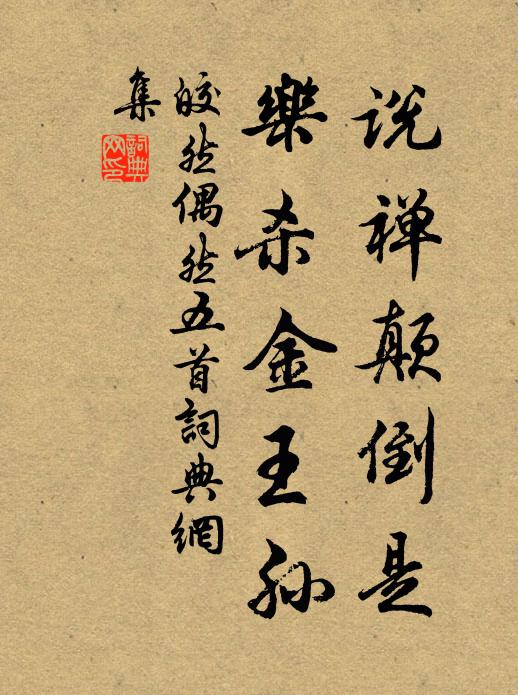 说禅颠倒是
樂杀金王孙
皎然偶然五首詞典網
集
詞典
网印